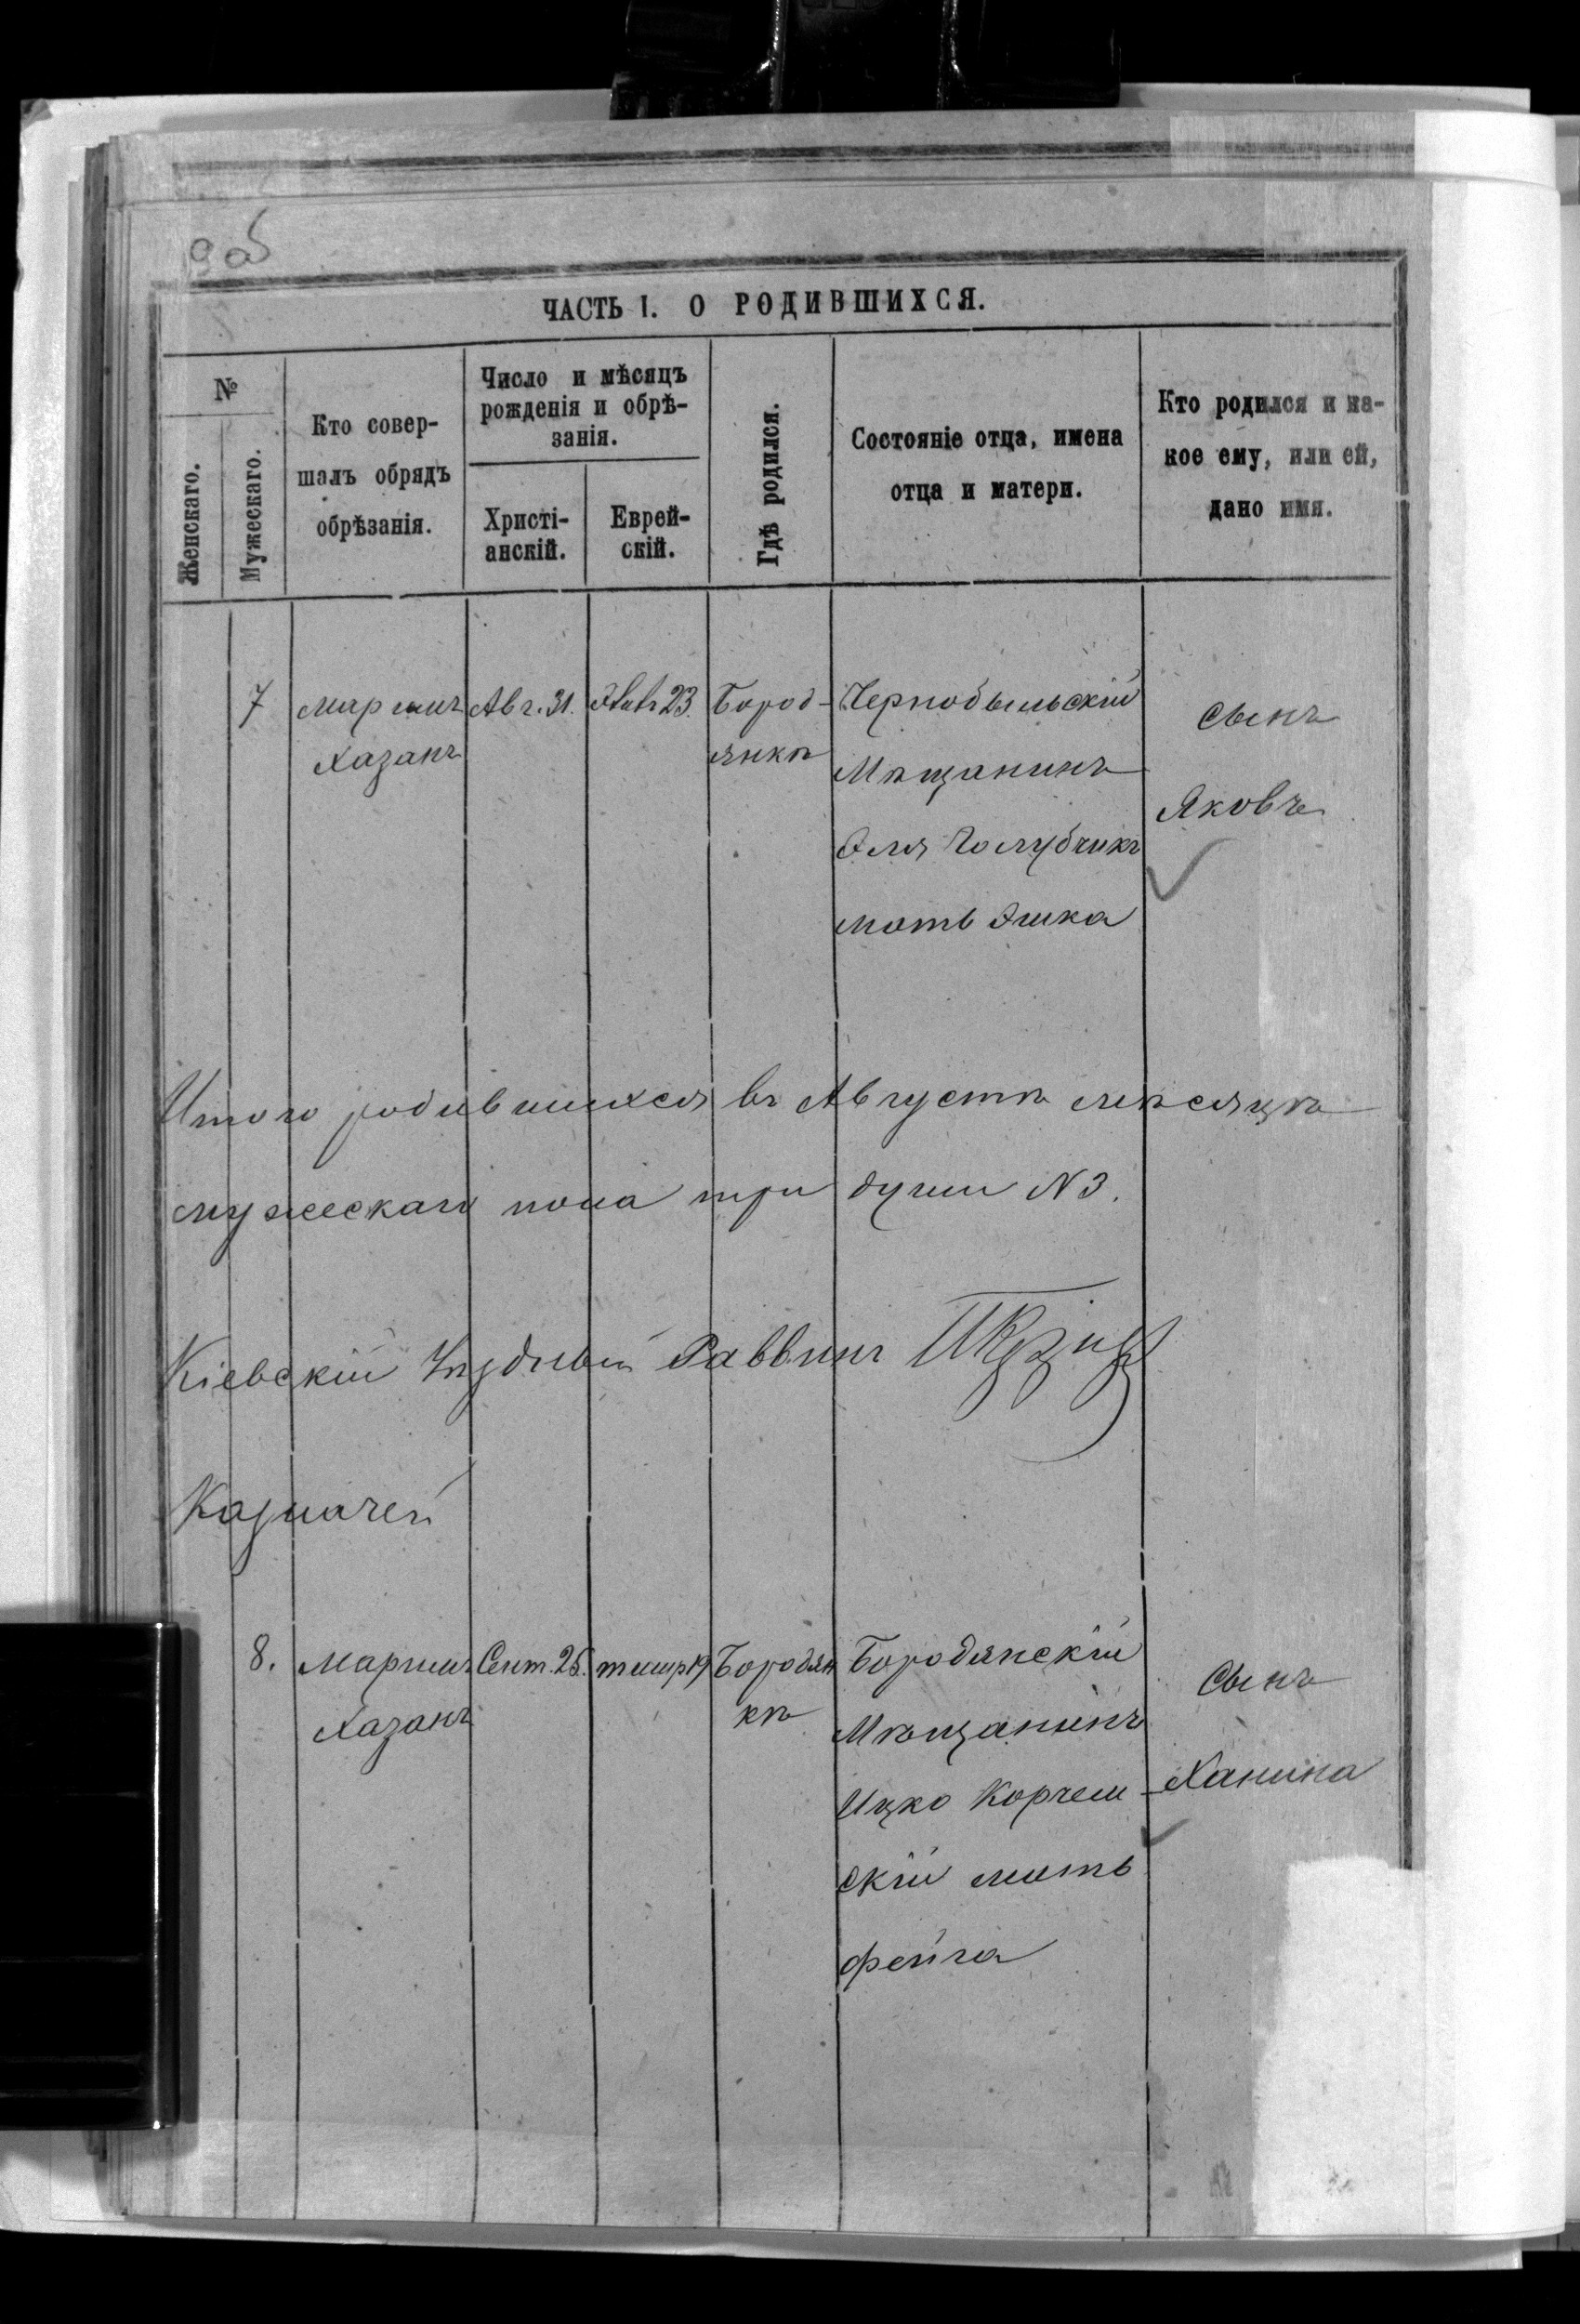 9 об
ЧАСТЬ I. О РОДИВШИХСЯ.
№
Женскаго.
Мужескаго.
Кто совер-
шалъ обрядъ
обрѣзанія.
Число и мѣсяцъ
рожденія и обрѣ-
занія.
Христі-
анскій.
Еврей-
скій.
Гдѣ родился.
Состояніе отца, имена
отца и матери.
Кто родился и ка-
кое ему, или ей,
дано имя.
7
Хазанъ
Авг. 31.
23.
Бород-
янкѣ
Чернобыльскій
Мѣщанинъ
Эля Голубчикъ
мать
сынъ
Яковъ
Итого родившихся въ Августѣ мѣсяцѣ
мужескаго пола три души N 3.
Кіевскій Уѣздный Раввинъ
Казначей
8.
Хазанъ
Сент. 26.
тишр 19
Бородян
кѣ
Бородянскій
Мѣщанинъ
Ицко Корчем-
скій мать
Фейга
Сынъ
Ханина